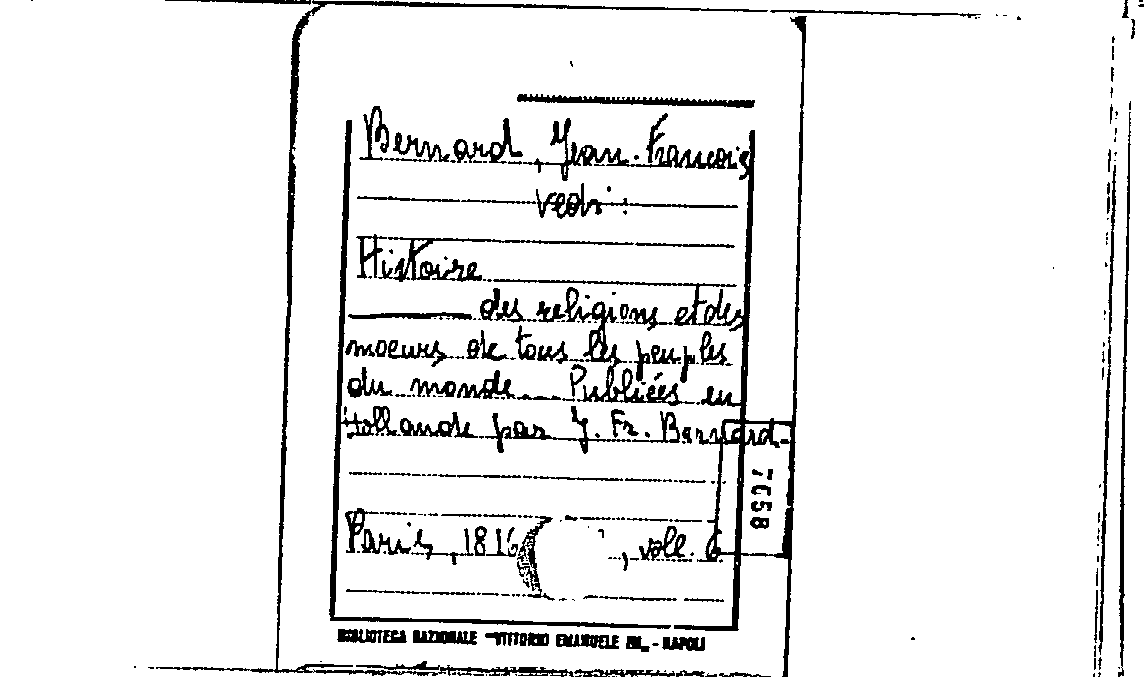 Bernard, Jean-Francois
vedi:
Histoire
des religions et des
moeurs de tous les peuples
du monde... Publiées en
Hollande par J. Fr. Bernard-
Paris, 1816 , voll. 6
7058
BIBLIOTECA NAZIONALE "VITTORIO EMANUELE III„ - NAPOLI